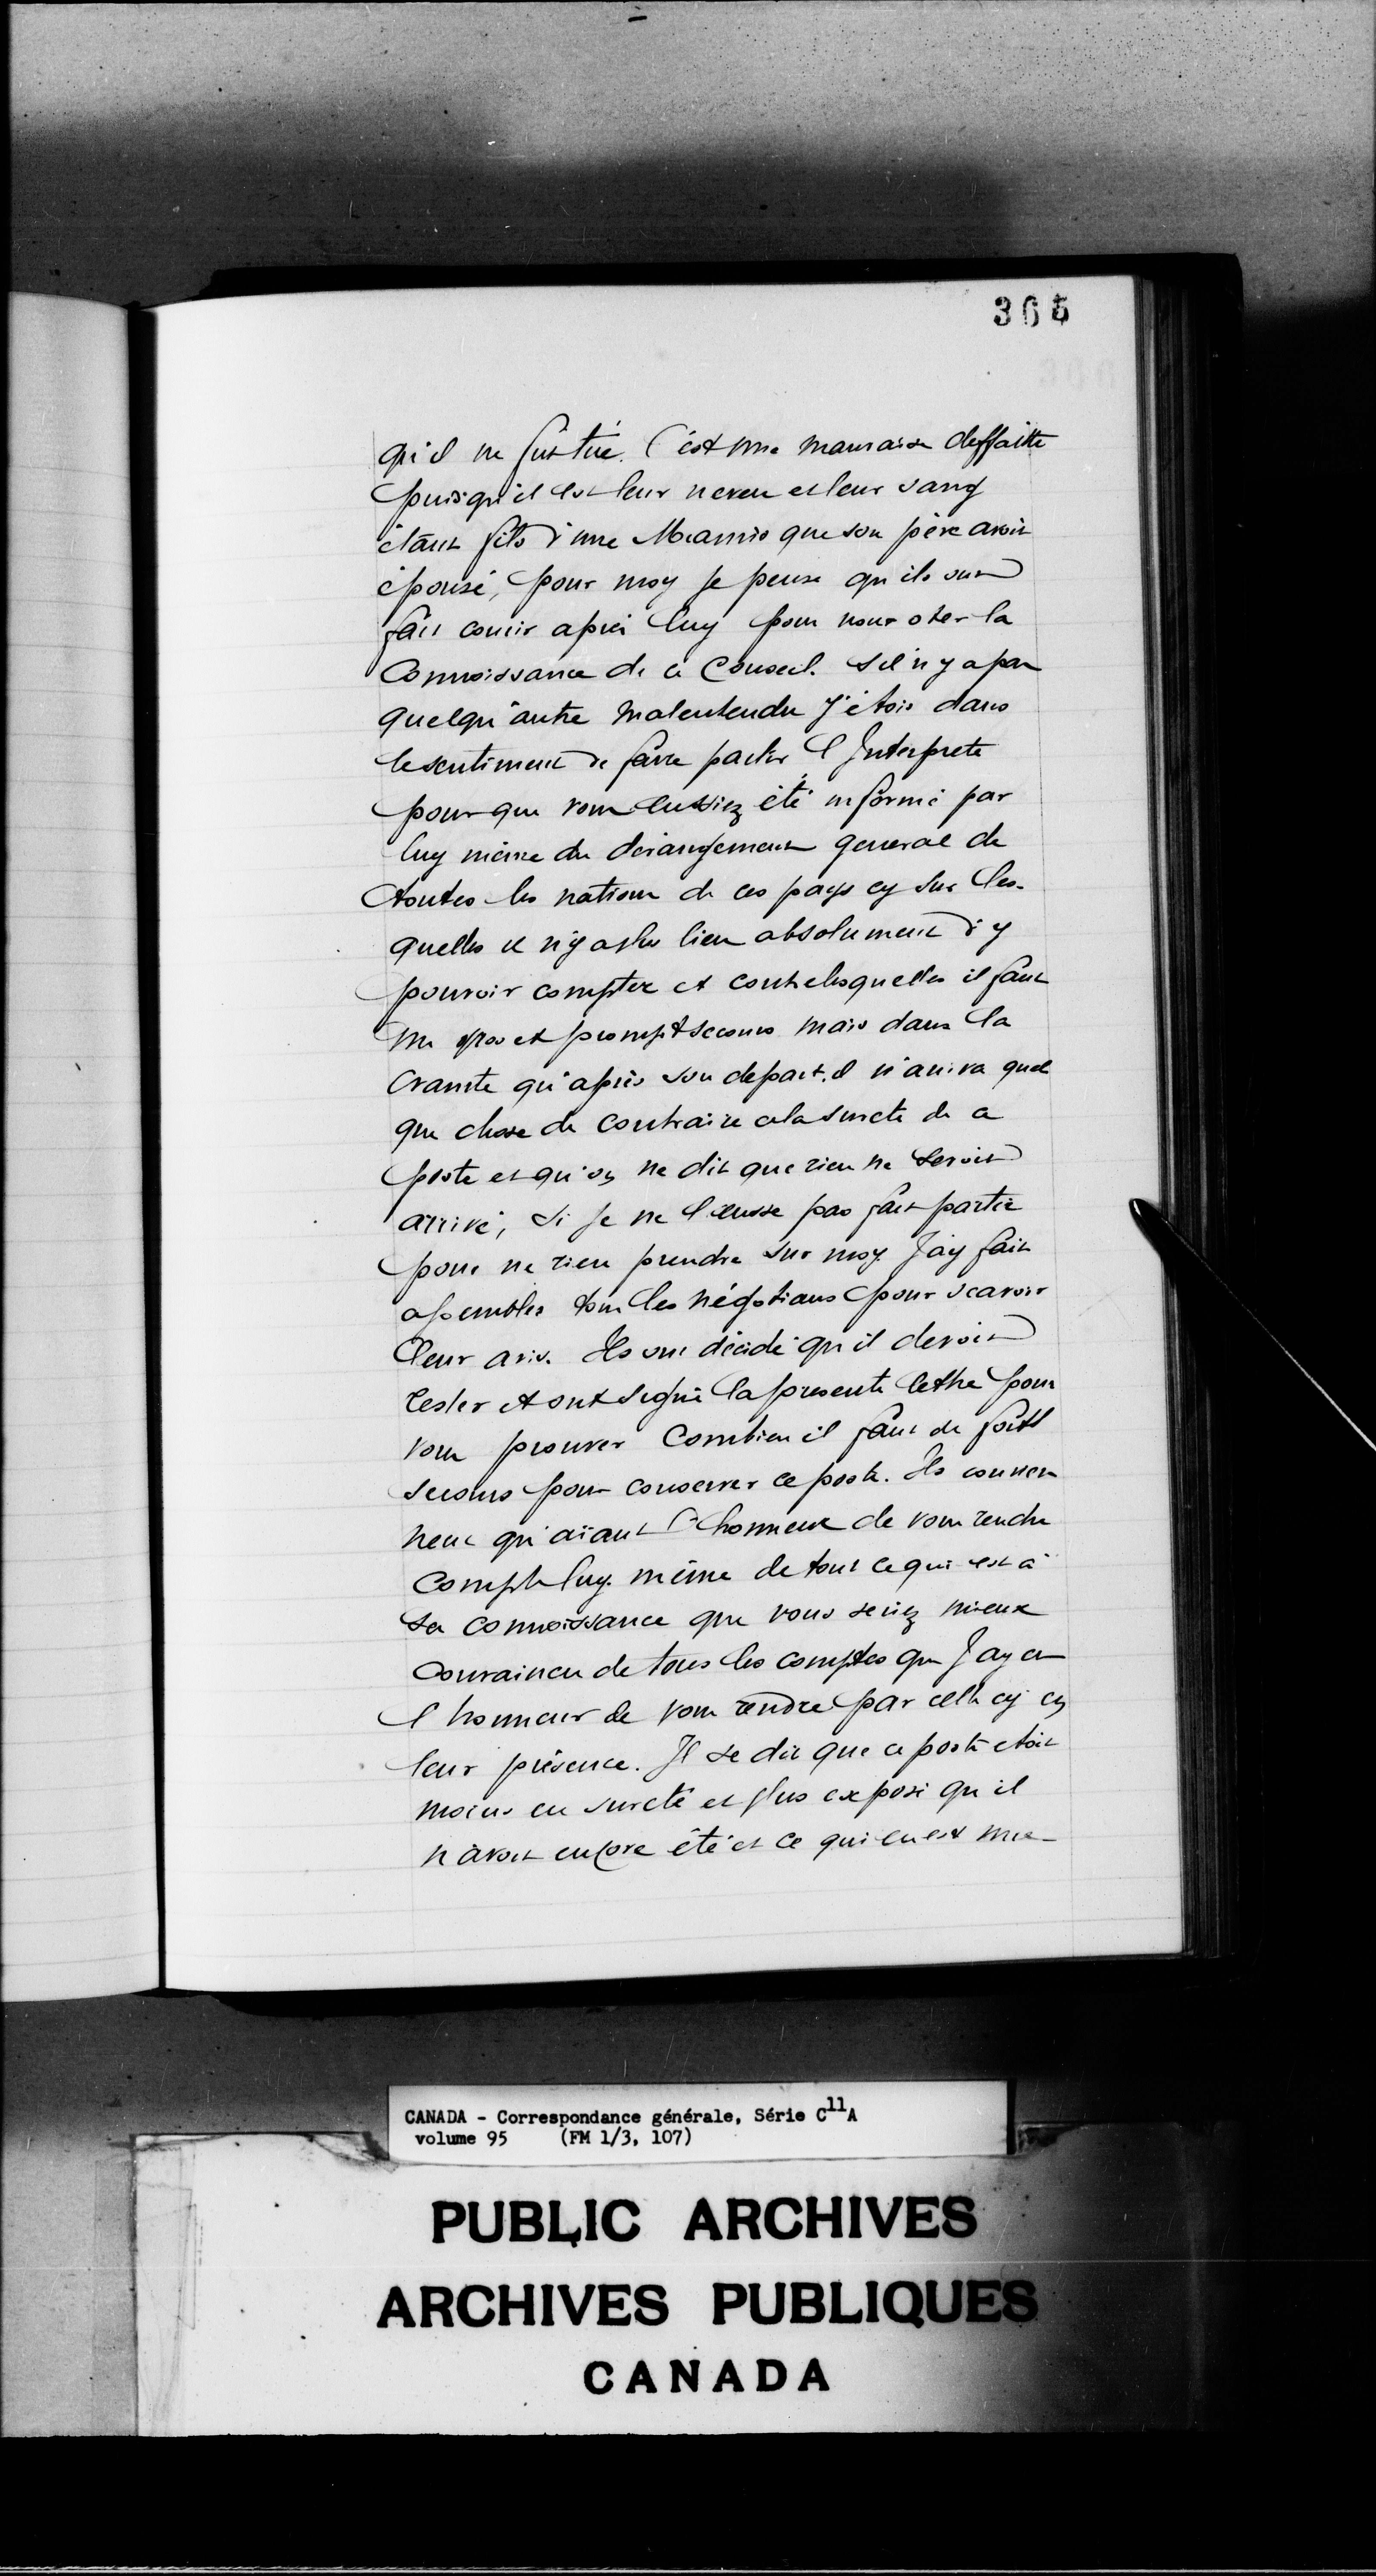 365
qu'il ne fut tué. C'est une mauvaise deffaitte
puisqu'il est leur neveu et leur sang
étant fils d'une Miamis que son père avoit
épousé, pour moy je pense qu'ils ont
fait courir après luy pour nous oter la
Connoissance de ce Conseil. s'il n'y a pas
quelqu'autre malentendu j'étois dans
le sentiment de faire partir l'Interprete
pour que vous eussiez été informé par
luy même du dérangement general de
toutes les nations de ces pays cy sur les-
quelles il n'y a plus lieu absolument d'y
pouvoir compter et contre lesquelles il faut
un gros et prompt secours mais dans la
crainte qu'après son depart, il n'arriva quel
que chose de contraire a la sureté de ce
poste et qu'on ne dit que rien ne seroit
arrivé, si je ne l'eusse pas fait partir
pour ne rien prendre sur moy. J'ay fait
assembler tous les négotians pour scavoir
leur avis. Ils ont décidé qu'il devoit
rester et ont signé la presente lettre pour
vous prouver combien il faut de forts
secours pour conserver ce poste. Ils convien
nent qu'aïant l'honneur de vous rendre
compte luy même de tout ce qui est à
sa connoissance que vous seriez mieux
convaincu de tous les comptes que J'ay eu
l'honneur de vous rendre par celle cy en
leur présence. Il se dit que ce poste etoit
moins en sureté et plus exposé qu'il
n'avoit encore été et ce qui en est une
CANADA - Correspondance générale, Série C11A
volume 95 (FM 1/3, 107)
PUBLIC ARCHIVES
ARCHIVES PUBLIQUES
CANADA